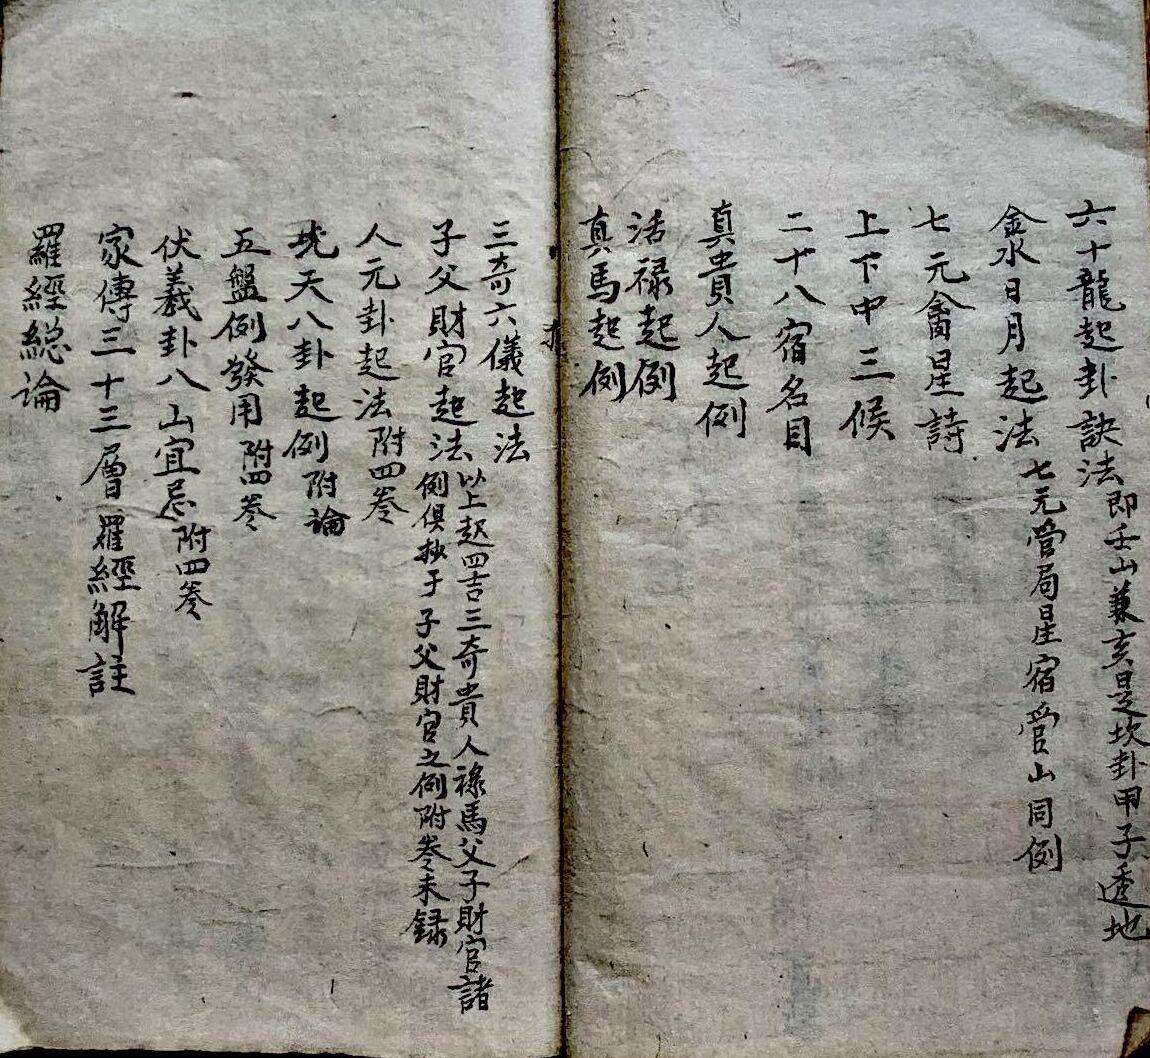 六十龍起卦訣法即壬山兼亥是坎卦甲子透地
金水日月起法七元管局星宿管山同例
七元禽星詩
上下中三候
二十八宿名目
真貴人起例
活祿起例
真馬起例
三奇六儀起法
子父財官起法以上起四吉三奇貴人祿馬父子財官諸
例俱抄于子父財官之例附卷未録
人元卦起法附四卷
先天八卦起例附論
五盤例發用附四卷
伏羲卦八山宜忌附四卷
家傳三十三層羅經解註
羅經総論